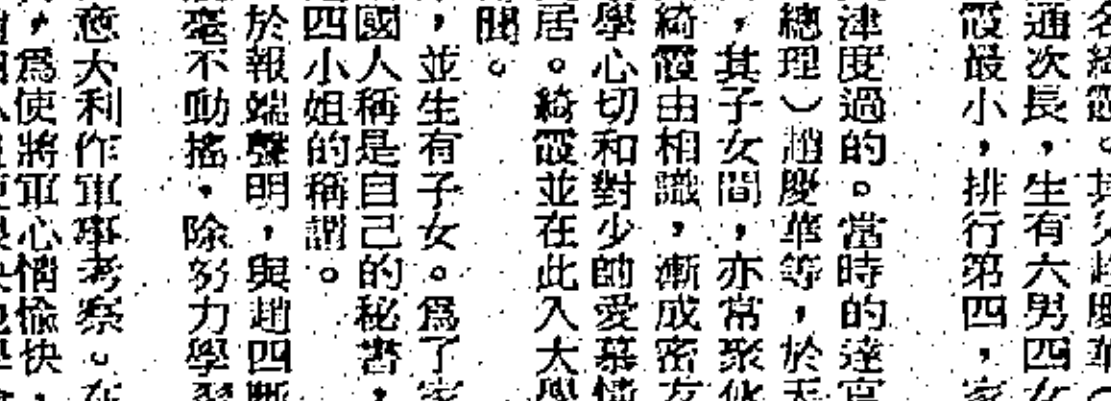 名綺霞。其父趙慶華
通次長，生有六男四女
霞最小，排行第四，家
津度過的。當時的達官
總理）趙慶華等，於天
，其子女間，亦常聚
綺霞由相識，漸成密友
學心切和對少帥愛慕情
居。綺霞並在此入大學
聞。
，並生有子女。爲了家
國人稱是自己的秘書，
四小姐的稱謂。
於報端聲明，與趙四斷
毫不動搖，除努力學習
意大利作軍事考察。在
，爲使將軍心情愉快